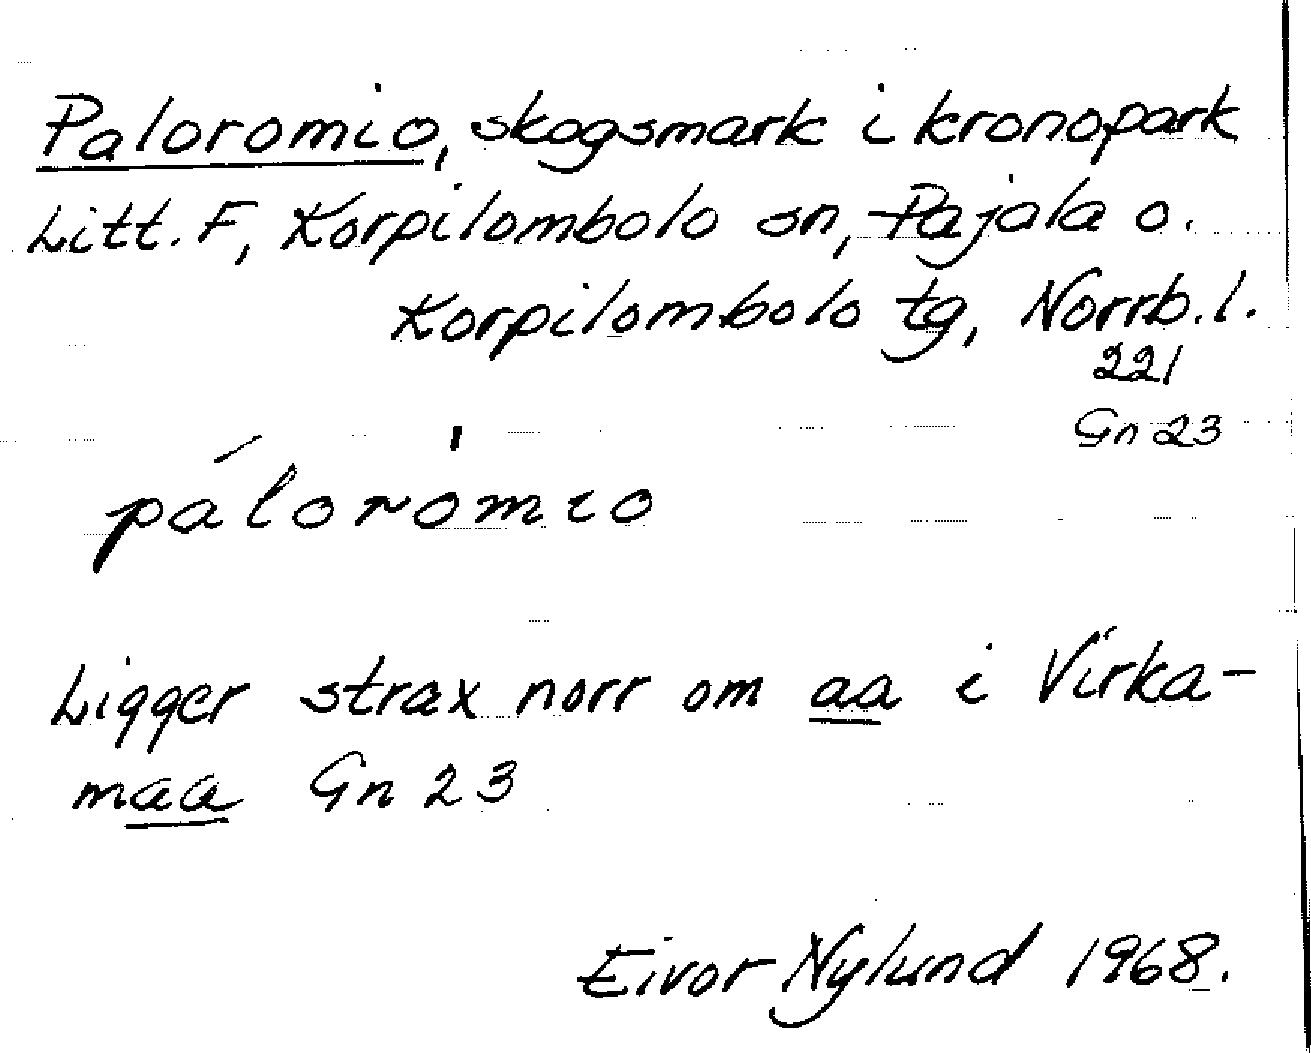 Paloromio, skogsmark i kronopark
Litt. F, Korpilombolo sn, Pajala o.
Korpilombolo tg, Norrb. l.
221
Gn 23
páloròmio
Ligger strax norr om aa i Virka-
maa Gn 23
Eivor Nylund 1968.